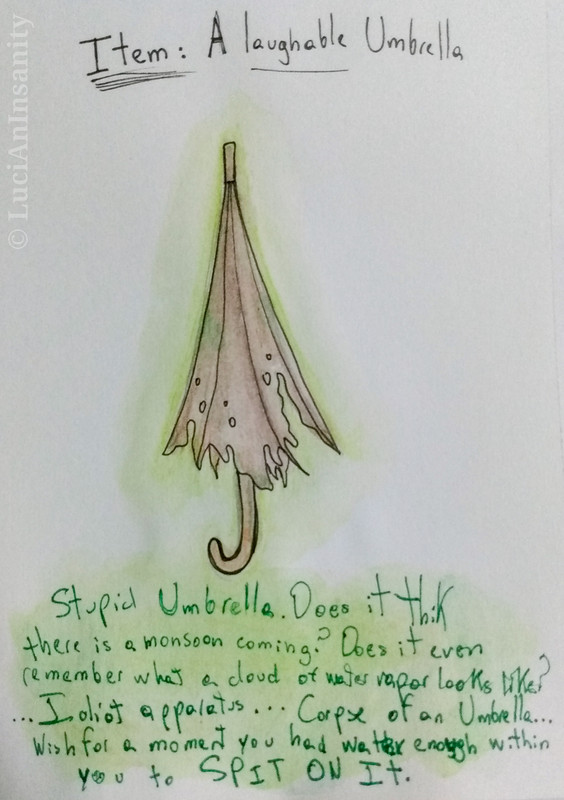 © LuciAnInsanity
Item: A laughable Umbrella
Stupid Umbrella. Does it thik
there is a monsoon coming? Does it even
remember what a cloud of water vapor looks like?
...Idiot apparatus... Corpse of an Umbrella...
Wish for a moment you had water enough within
you to SPIT ON It.